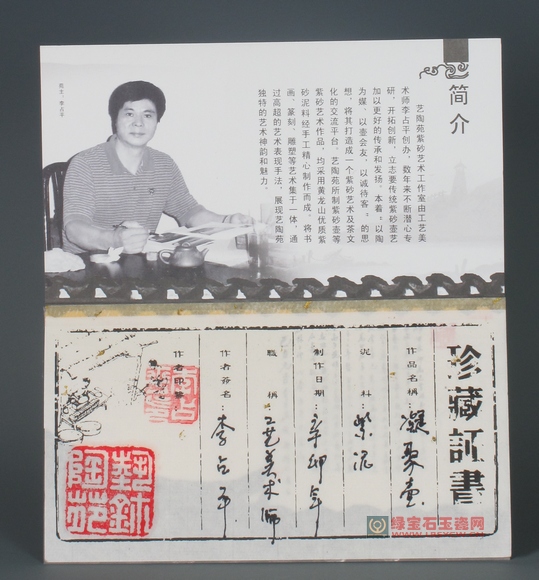 简介
艺陶苑紫砂艺术工作室由工艺美
术师李占平创办，数年来不断潜心专
研，开拓创新，立志要传统紫砂壶艺
加以更好的传承和发扬。本着“以陶
为媒、以壶会友、以诚待客”的思
想，将其打造成一个紫砂艺术及茶文
化的交流平台。艺陶苑所制紫砂壶等
紫砂艺术作品，均采用黄龙山优质紫
砂泥料经手工精心制作而成，将书
画、篆刻、雕塑等艺术集于一体，通
过高超的艺术表现手法，展现艺陶苑
独特的艺术神韵和魅力。
苑主：李占平
珍藏証書
作品名稱：凝聚壶
泥料：紫泥
制作日期：辛卯年
職稱：工艺美术师
作者签名：李占平
作者印章
绿宝石玉瓷网